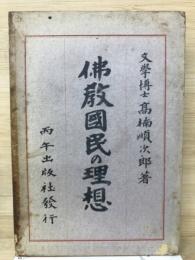 文學博士 高楠順次郎著
佛敎國民の理想
丙午出版社發行